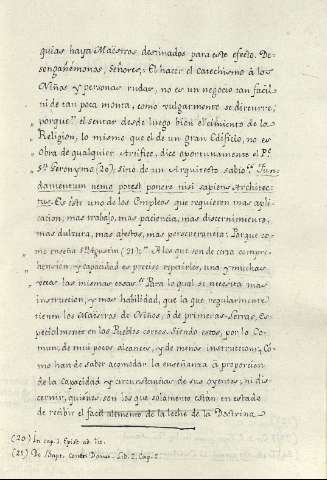 quias haya Maestros destinados para este efecto. De-
sengañémonos, Señores: El hacer el catechismo à los
Niños y personas rudas, no es un negocio tan facil
ni de tan poca monta, como vulgarmente se discurre;
porque el sentar desde luego bien el cimiento de la
Religion, lo mismo que el de un gran Edificio, no es
Obra de qualquier Artifice, dice oportunamente el P.e
Sn. Geronymo (20) sino de un Arquitecto sabio: Fun-
damentum nemo potest ponere nisi sapiens Architec-
tus. Es este uno de los Empleos que requieren mas apli-
cacion, mas trabajo, mas paciencia, mas discernimiento,
mas dulzura, mas afectos, mas perseverancia: Porque co-
mo enseña Sn. Agustin (21): A los que son de corta compre-
hension, y capacidad es preciso repetirles, una y muchas
veces las mismas cosas. Para lo qual se necesita mas
instruccion, y mas habilidad, que la que regularmente
tienen los Maestros de Niños, ò de primeras Letras, Es-
pecialmente en los Pueblos cortos. Siendo estos, por lo Co-
mun, de mui pocos alcances, y de menos instruccion, Co-
mo han de saber acomodar la enseñanza a proporcion
de la Capacidad y circunstancias de sus oyentes, ni dis-
cernir, quienes son los que solamente están en estado
de recibir el facil alimento de la leche de la Doctrina
(20) In cap. 3. Epist. ad Tit.
(21) De Bapt. contra Donat. Lib. 2. Cap. 1.